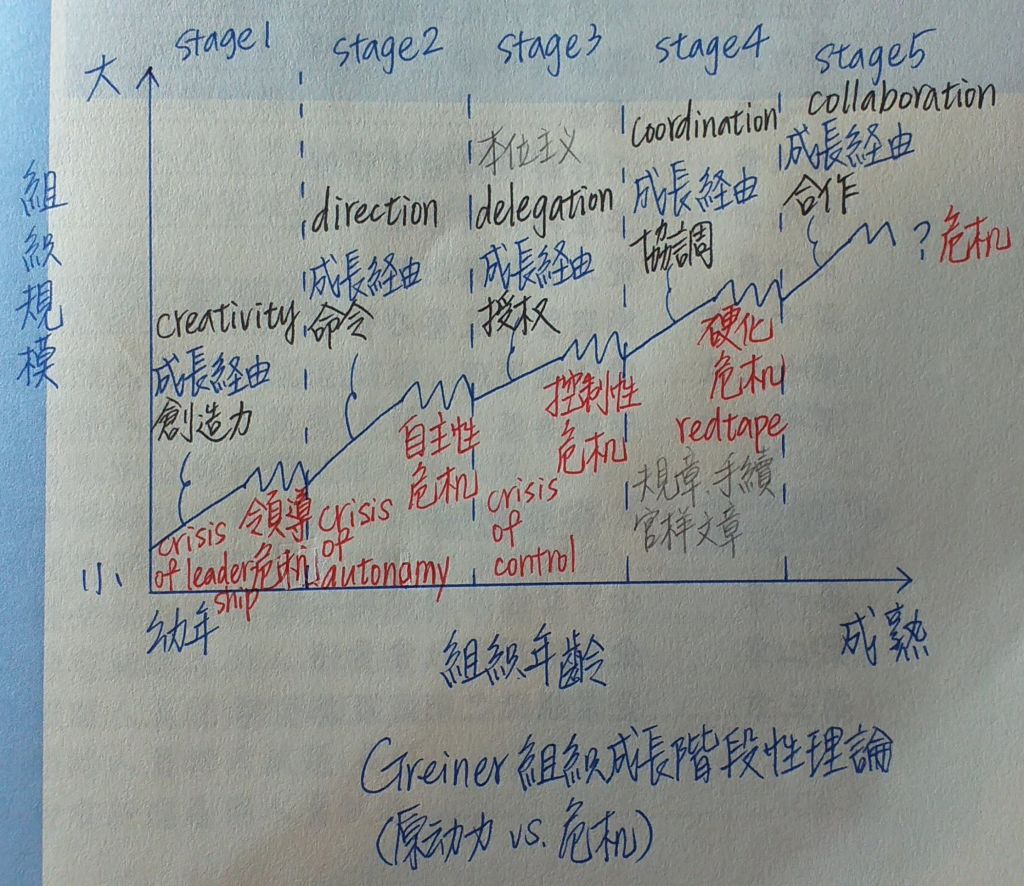 stage1
stage2
stage3
stage4
stage5
大
組織規模
小
creativity
成長経由
創造力
crisis
of leader
ship
領導
危机
direction
成長経由
命令
自主性
危机
crisis
of
autonamy
本位主义
delegation
成長経由
授权
控制性
危机
crisis
of
control
coordination
成長経由
協調
硬化
危机
redtape
規章、手續
官样文章
collaboration
成長経由
合作
?危机
幼年
組織年齡
成熟
Greiner組織成長階段性理論
(原动力 vs. 危机)